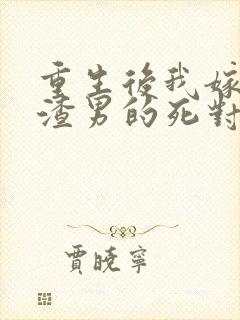 重生後我嫁
渣男的死對
賈曉寧